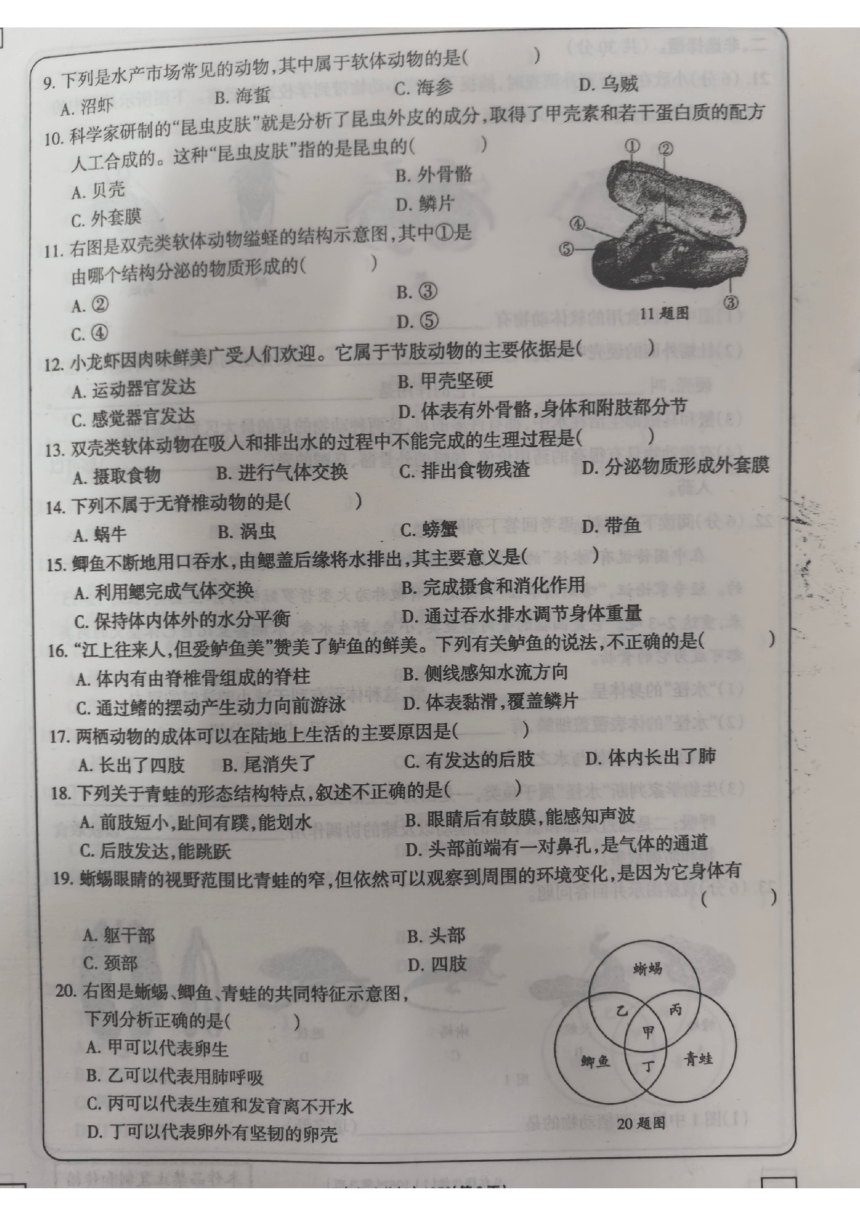 9. 下列是水产市场常见的动物,其中属于软体动物的是(　　)
A. 沼虾　B. 海蜇　C. 海参　D. 乌贼
10. 科学家研制的“昆虫皮肤”就是分析了昆虫外皮的成分,取得了甲壳素和若干蛋白质的配方
人工合成的。这种“昆虫皮肤”指的是昆虫的(　　)
A. 贝壳　B. 外骨骼
C. 外套膜　D. 鳞片
11. 右图是双壳类软体动物缢蛏的结构示意图,其中①是
由哪个结构分泌的物质形成的(　　)
A. ②　B. ③
C. ④　D. ⑤
① ②
④
⑤
③
11 题图
12. 小龙虾因肉味鲜美广受人们欢迎。它属于节肢动物的主要依据是(　　)
A. 运动器官发达　B. 甲壳坚硬
C. 感觉器官发达　D. 体表有外骨骼,身体和附肢都分节
13. 双壳类软体动物在吸入和排出水的过程中不能完成的生理过程是(　　)
A. 摄取食物　B. 进行气体交换　C. 排出食物残渣　D. 分泌物质形成外套膜
14. 下列不属于无脊椎动物的是(　　)
A. 蜗牛　B. 涡虫　C. 螃蟹　D. 带鱼
15. 鲫鱼不断地用口吞水,由鳃盖后缘将水排出,其主要意义是(　　)
A. 利用鳃完成气体交换　B. 完成摄食和消化作用
C. 保持体内体外的水分平衡　D. 通过吞水排水调节身体重量
16. “江上往来人,但爱鲈鱼美”赞美了鲈鱼的鲜美。下列有关鲈鱼的说法,不正确的是(　　)
A. 体内有由脊椎骨组成的脊柱　B. 侧线感知水流方向
C. 通过鳍的摆动产生动力向前游泳　D. 体表黏滑,覆盖鳞片
17. 两栖动物的成体可以在陆地上生活的主要原因是(　　)
A. 长出了四肢　B. 尾消失了　C. 有发达的后肢　D. 体内长出了肺
18. 下列关于青蛙的形态结构特点,叙述不正确的是(　　)
A. 前肢短小,趾间有蹼,能划水　B. 眼睛后有鼓膜,能感知声波
C. 后肢发达,能跳跃　D. 头部前端有一对鼻孔,是气体的通道
19. 蜥蜴眼睛的视野范围比青蛙的窄,但依然可以观察到周围的环境变化,是因为它身体有
(　　)
A. 躯干部　B. 头部
C. 颈部　D. 四肢
20. 右图是蜥蜴、鲫鱼、青蛙的共同特征示意图,
下列分析正确的是(　　)
A. 甲可以代表卵生
B. 乙可以代表用肺呼吸
C. 丙可以代表生殖和发育离不开水
D. 丁可以代表卵外有坚韧的卵壳
蜥蜴
乙 丙
甲
鲫鱼 丁 青蛙
20 题图